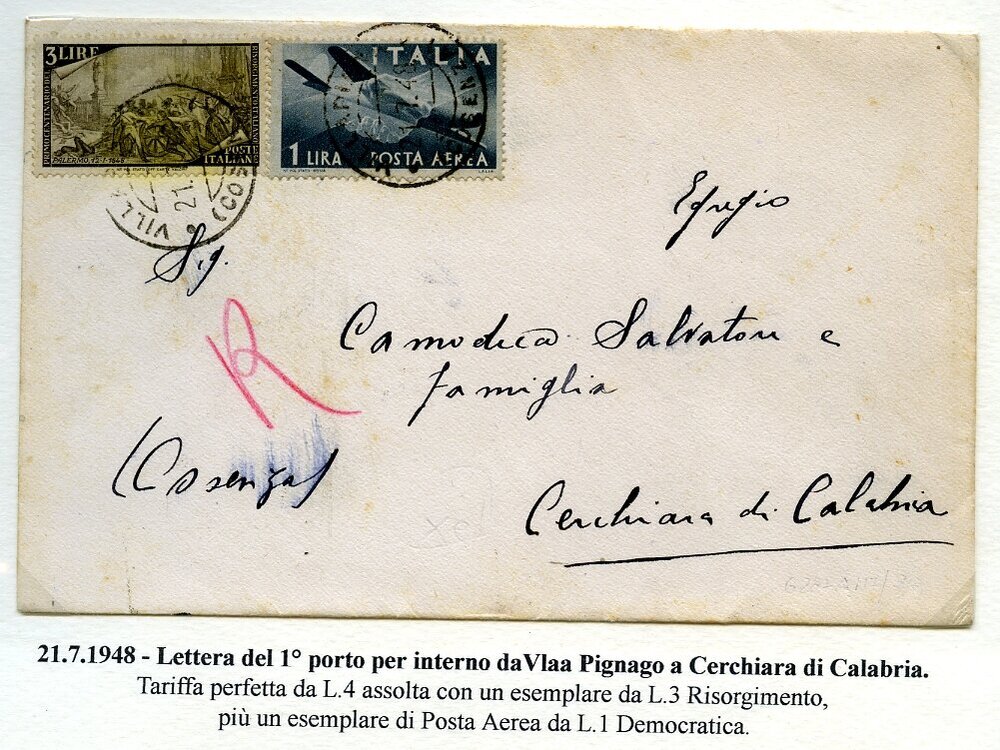 3 LIRE
PRIMO CENTENARIO DEL
RISORGIMENTO ITALIANO
PALERMO·12·I·1848
POSTE
ITALIANE
ITALIA
1 LIRA POSTA AEREA
VILL
21.
(COS
Egregio
Sig.
R
Camodeca Salvatore e
famiglia
(Cosenza)
Cerchiara di Calabria
21.7.1948 - Lettera del 1° porto per interno daVlaa Pignago a Cerchiara di Calabria.
Tariffa perfetta da L.4 assolta con un esemplare da L.3 Risorgimento,
più un esemplare di Posta Aerea da L.1 Democratica.